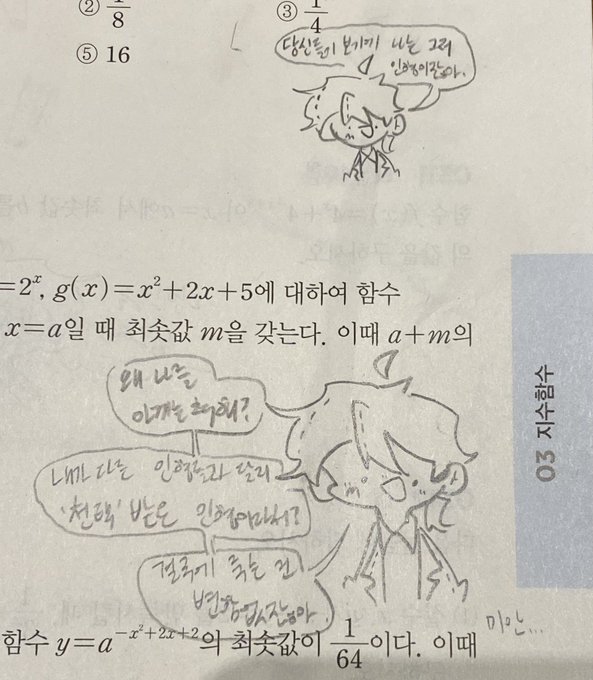 ② 1/8 ③ 1/4
⑤ 16
당신들이 보기에 나는 그저
인형이잖아.
=2ˣ, g(x)=x²+2x+5에 대하여 함수
x=a일 때 최솟값 m을 갖는다. 이때 a+m의
왜 나를
아끼는 척해?
내가 다른 인형들과 달리
'선택' 받은 인형이라서?
결국에 죽는 건
변함없잖아.
03 지수함수
함수 y=a^(-x²+2x+2)의 최솟값이 1/64이다. 이때
미안...